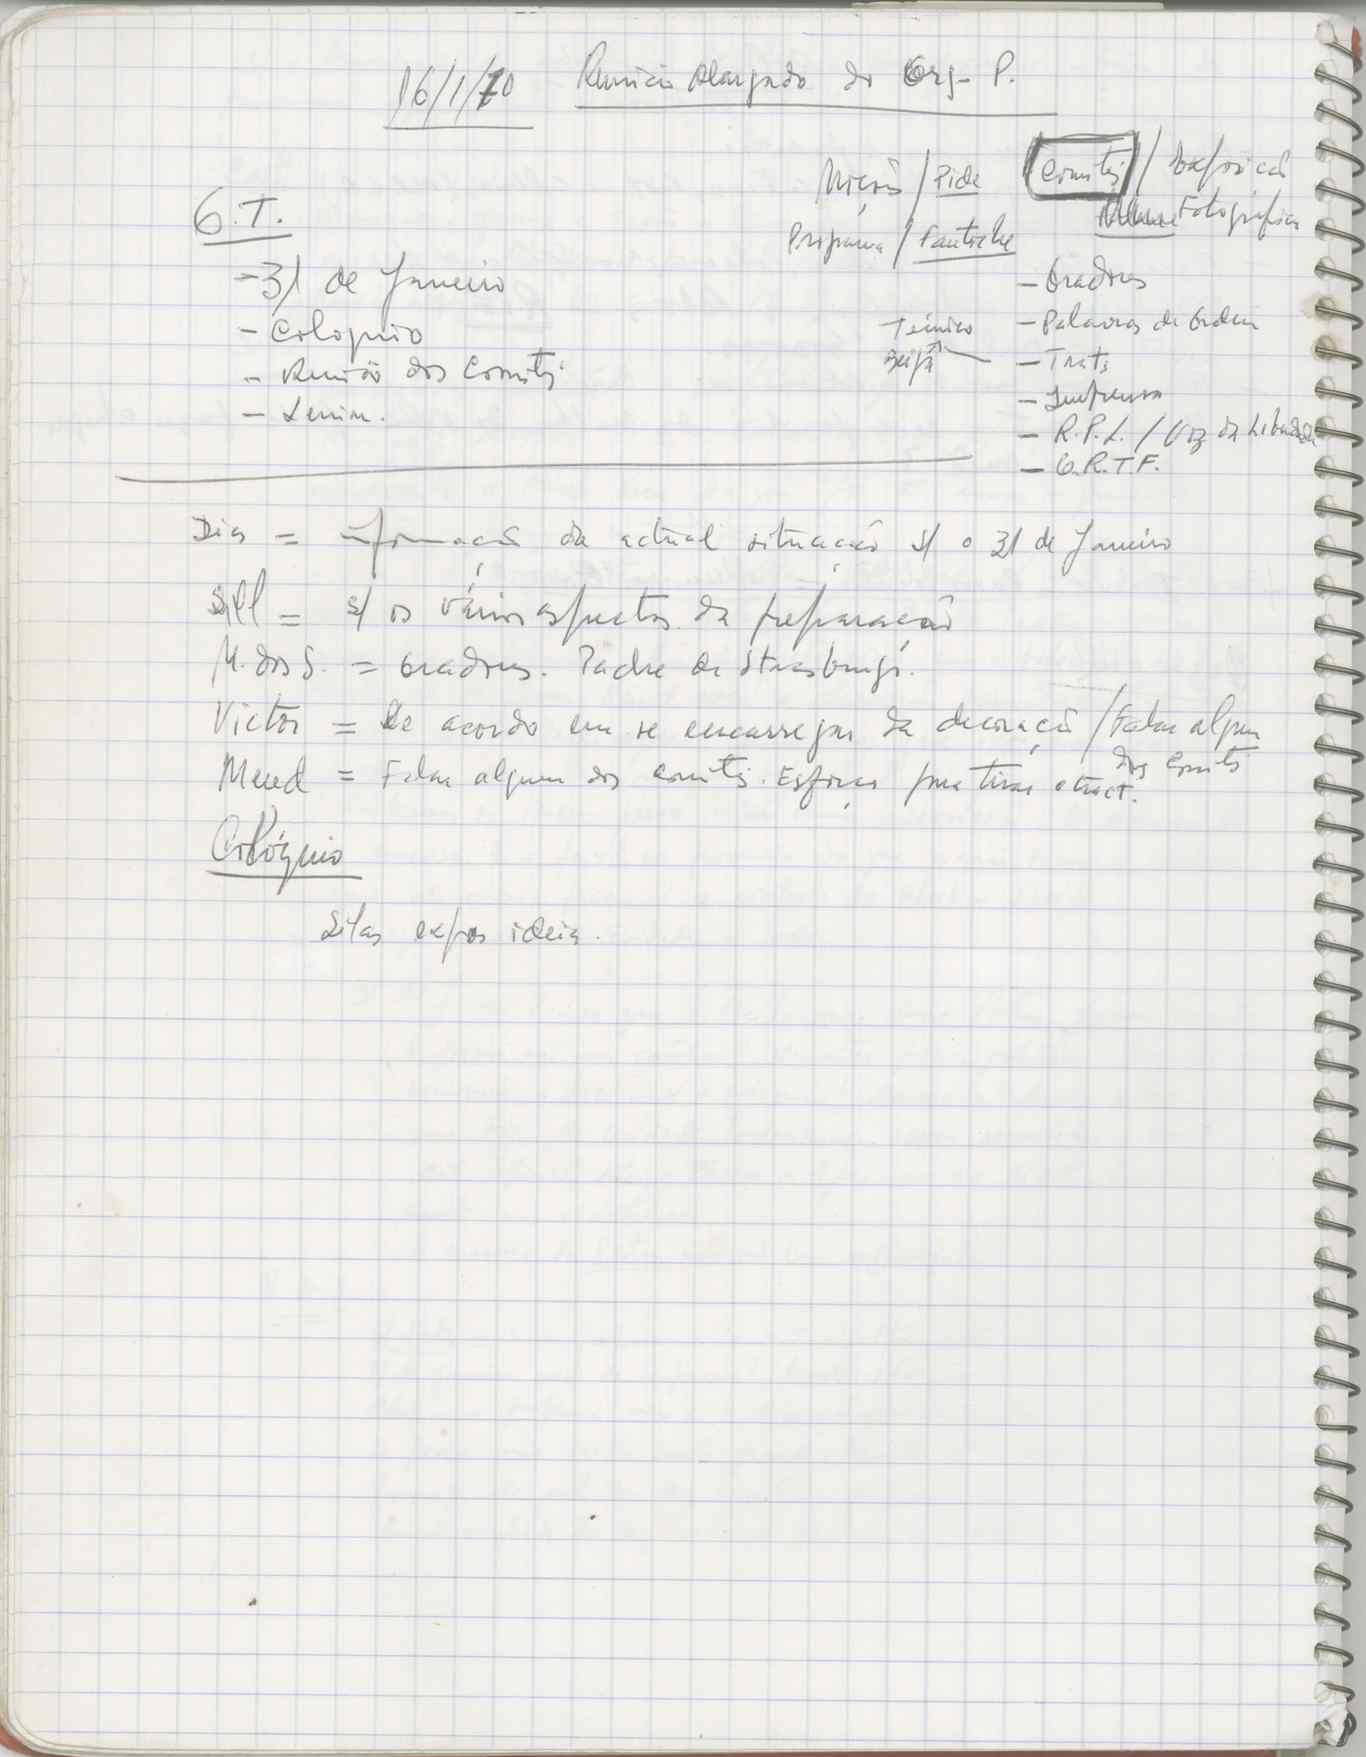 16/1/70 Reunião Alargada do Org. P.
Moções / Pide
Comités / Exposição
Fotográfica
Programa / Fantoche
O.T.
- 31 de Janeiro
- Coloquio
- Reunião dos Comités
- Lenin.
- Oradores
- Palavras de Ordem
- Tracts
- Imprensa
- R.P.L. / Voz da Liberdade
- O.R.T.F.
Técnico
Dias = informação da actual situação s/ o 31 de Janeiro
Sill = s/ os vários aspectos da preparação
M. dos S. = Oradores. Padre de Strasburgo.
Victor = De acordo em se encarregar da decoração / Falar alguem
dos Comités
Mend = Falar alguem dos Comités. Esforço para tirar o tract.
Colóquio
Silas expos ideia.